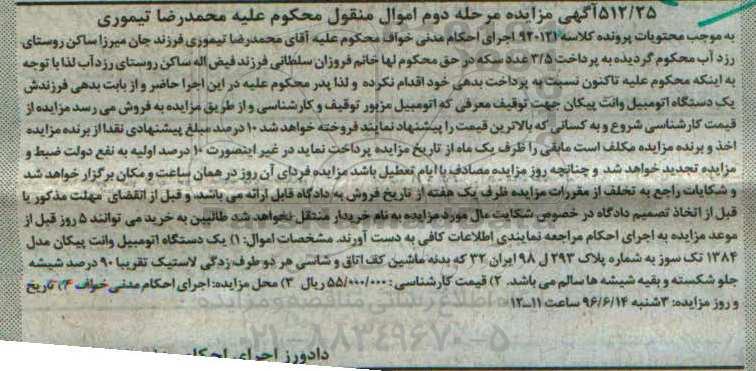 ۵۱۲/۲۵آگهی مزایده مرحله دوم اموال منقول محکوم علیه محمدرضا تیموری
به موجب محتویات پرونده کلاسه ۹۲۰۱۲۱ اجرای احکام مدنی خواف محکوم علیه آقای محمدرضا تیموری فرزند جان میرزا ساکن روستای
رزد آب محکوم گردیده به پرداخت ۳/۵ عدد سکه در حق محکوم لها خانم فروزان سلطانی فرزند فیض اله ساکن روستای رزدآب لذا با توجه
به اینکه محکوم علیه تاکنون نسبت به پرداخت بدهی خود اقدام نکرده و لذا پدر محکوم علیه در این اجرا حاضر و از بابت بدهی فرزندش
یک دستگاه اتومبیل وانت پیکان جهت توقیف معرفی که اتومبیل مزبور توقیف و کارشناسی و از طریق مزایده به فروش می رسد مزایده از
قیمت کارشناسی شروع و به کسانی که بالاترین قیمت را پیشنهاد نمایند فروخته خواهد شد ۱۰ درصد مبلغ پیشنهادی نقدا از برنده مزایده
اخذ و برنده مزایده مکلف است مابقی را ظرف یک ماه از تاریخ مزایده پرداخت نماید در غیر اینصورت ۱۰ درصد اولیه به نفع دولت ضبط و
مزایده تجدید خواهد شد و چنانچه روز مزایده مصادف با ایام تعطیل باشد مزایده فردای آن روز در همان ساعت و مکان برگزار خواهد شد
و شکایات راجع به تخلف از مقررات مزایده ظرف یک هفته از تاریخ فروش به دادگاه قابل ارائه می باشد، و قبل از انقضای مهلت مذکور یا
قبل از اتخاذ تصمیم دادگاه در خصوص شکایت مال مورد مزایده به نام خریدار منتقل نخواهد شد طالبین به خرید می توانند ۵ روز قبل از
موعد مزایده به اجرای احکام مراجعه نمایندی اطلاعات کافی به دست آورند. مشخصات اموال: ۱) یک دستگاه اتومبیل وانت پیکان مدل
۱۳۸۴ تک سوز به شماره پلاک ۲۹۳ ل ۹۸ ایران ۳۲ که بدنه ماشین کف اتاق و شاسی هر دو طرف زدگی لاستیک تقریبا ۹۰ درصد شیشه
جلو شکسته و بقیه شیشه ها سالم می باشد. ۲) قیمت کارشناسی: ۵۵/۰۰۰/۰۰۰ ریال ۳) محل مزایده: اجرای احکام مدنی خواف ۴) تاریخ
و روز مزایده: ۳شنبه ۹۶/۶/۱۴ ساعت ۱۱-۱۲
اطلاع رسانی مناقصه و مزایده
۰۲۱-۸۸۳۴۹۶۷۰-۵
دادورز اجرای احکام